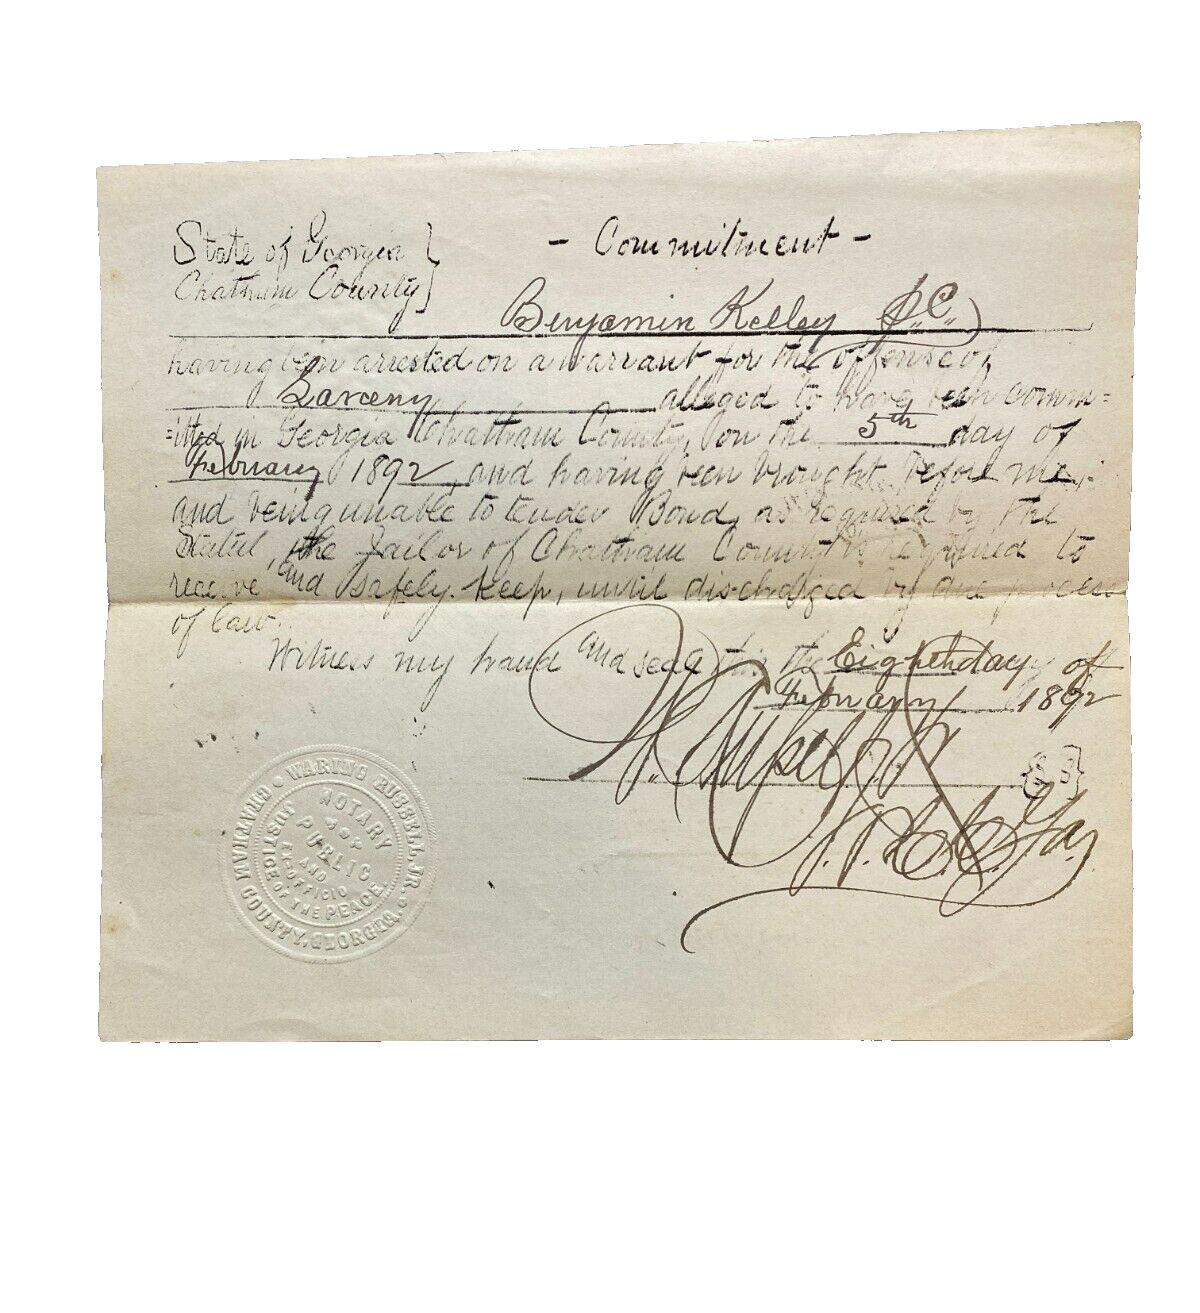 State of Georgia }
Chatham County }
- Commitment -
Benjamin Kelley
having been arrested on a warrant for the offense of
Larceny alleged to have been comm=
=itted in Georgia Chatham County, on the 5th day of
February 1892, and having been brought before me,
and being unable to tender Bond, as required by the
Statut, the Jailor of Chatham County is required to
receive, and safely keep, until discharged by due process
of law.
Witness my hand and seal this the Eighth day of
February 1892
{L S}
J.P. C.C. Ga.
WARING RUSSELL, JR.
CHATHAM COUNTY, GEORGIA.
NOTARY
PUBLIC
AND
EX-OFFICIO
JUSTICE OF THE PEACE.